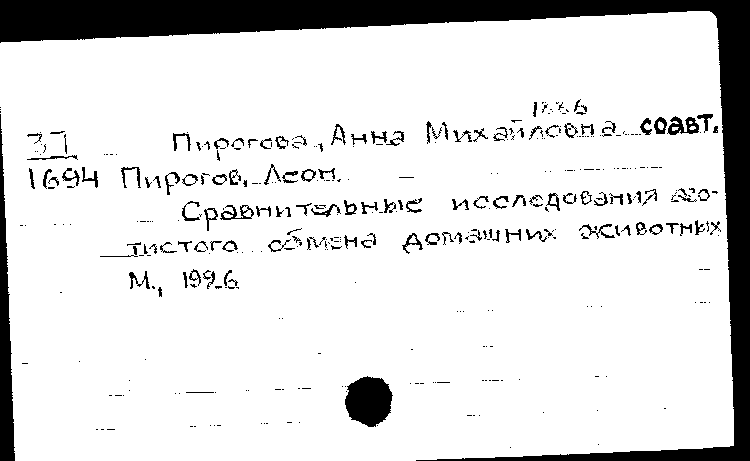 1886
37 Пирогова, Анна Михайловна соавт.
1694 Пирогов, Леон.
Сравнительные исследования азо-
тистого обмена домашних животных
М., 1926